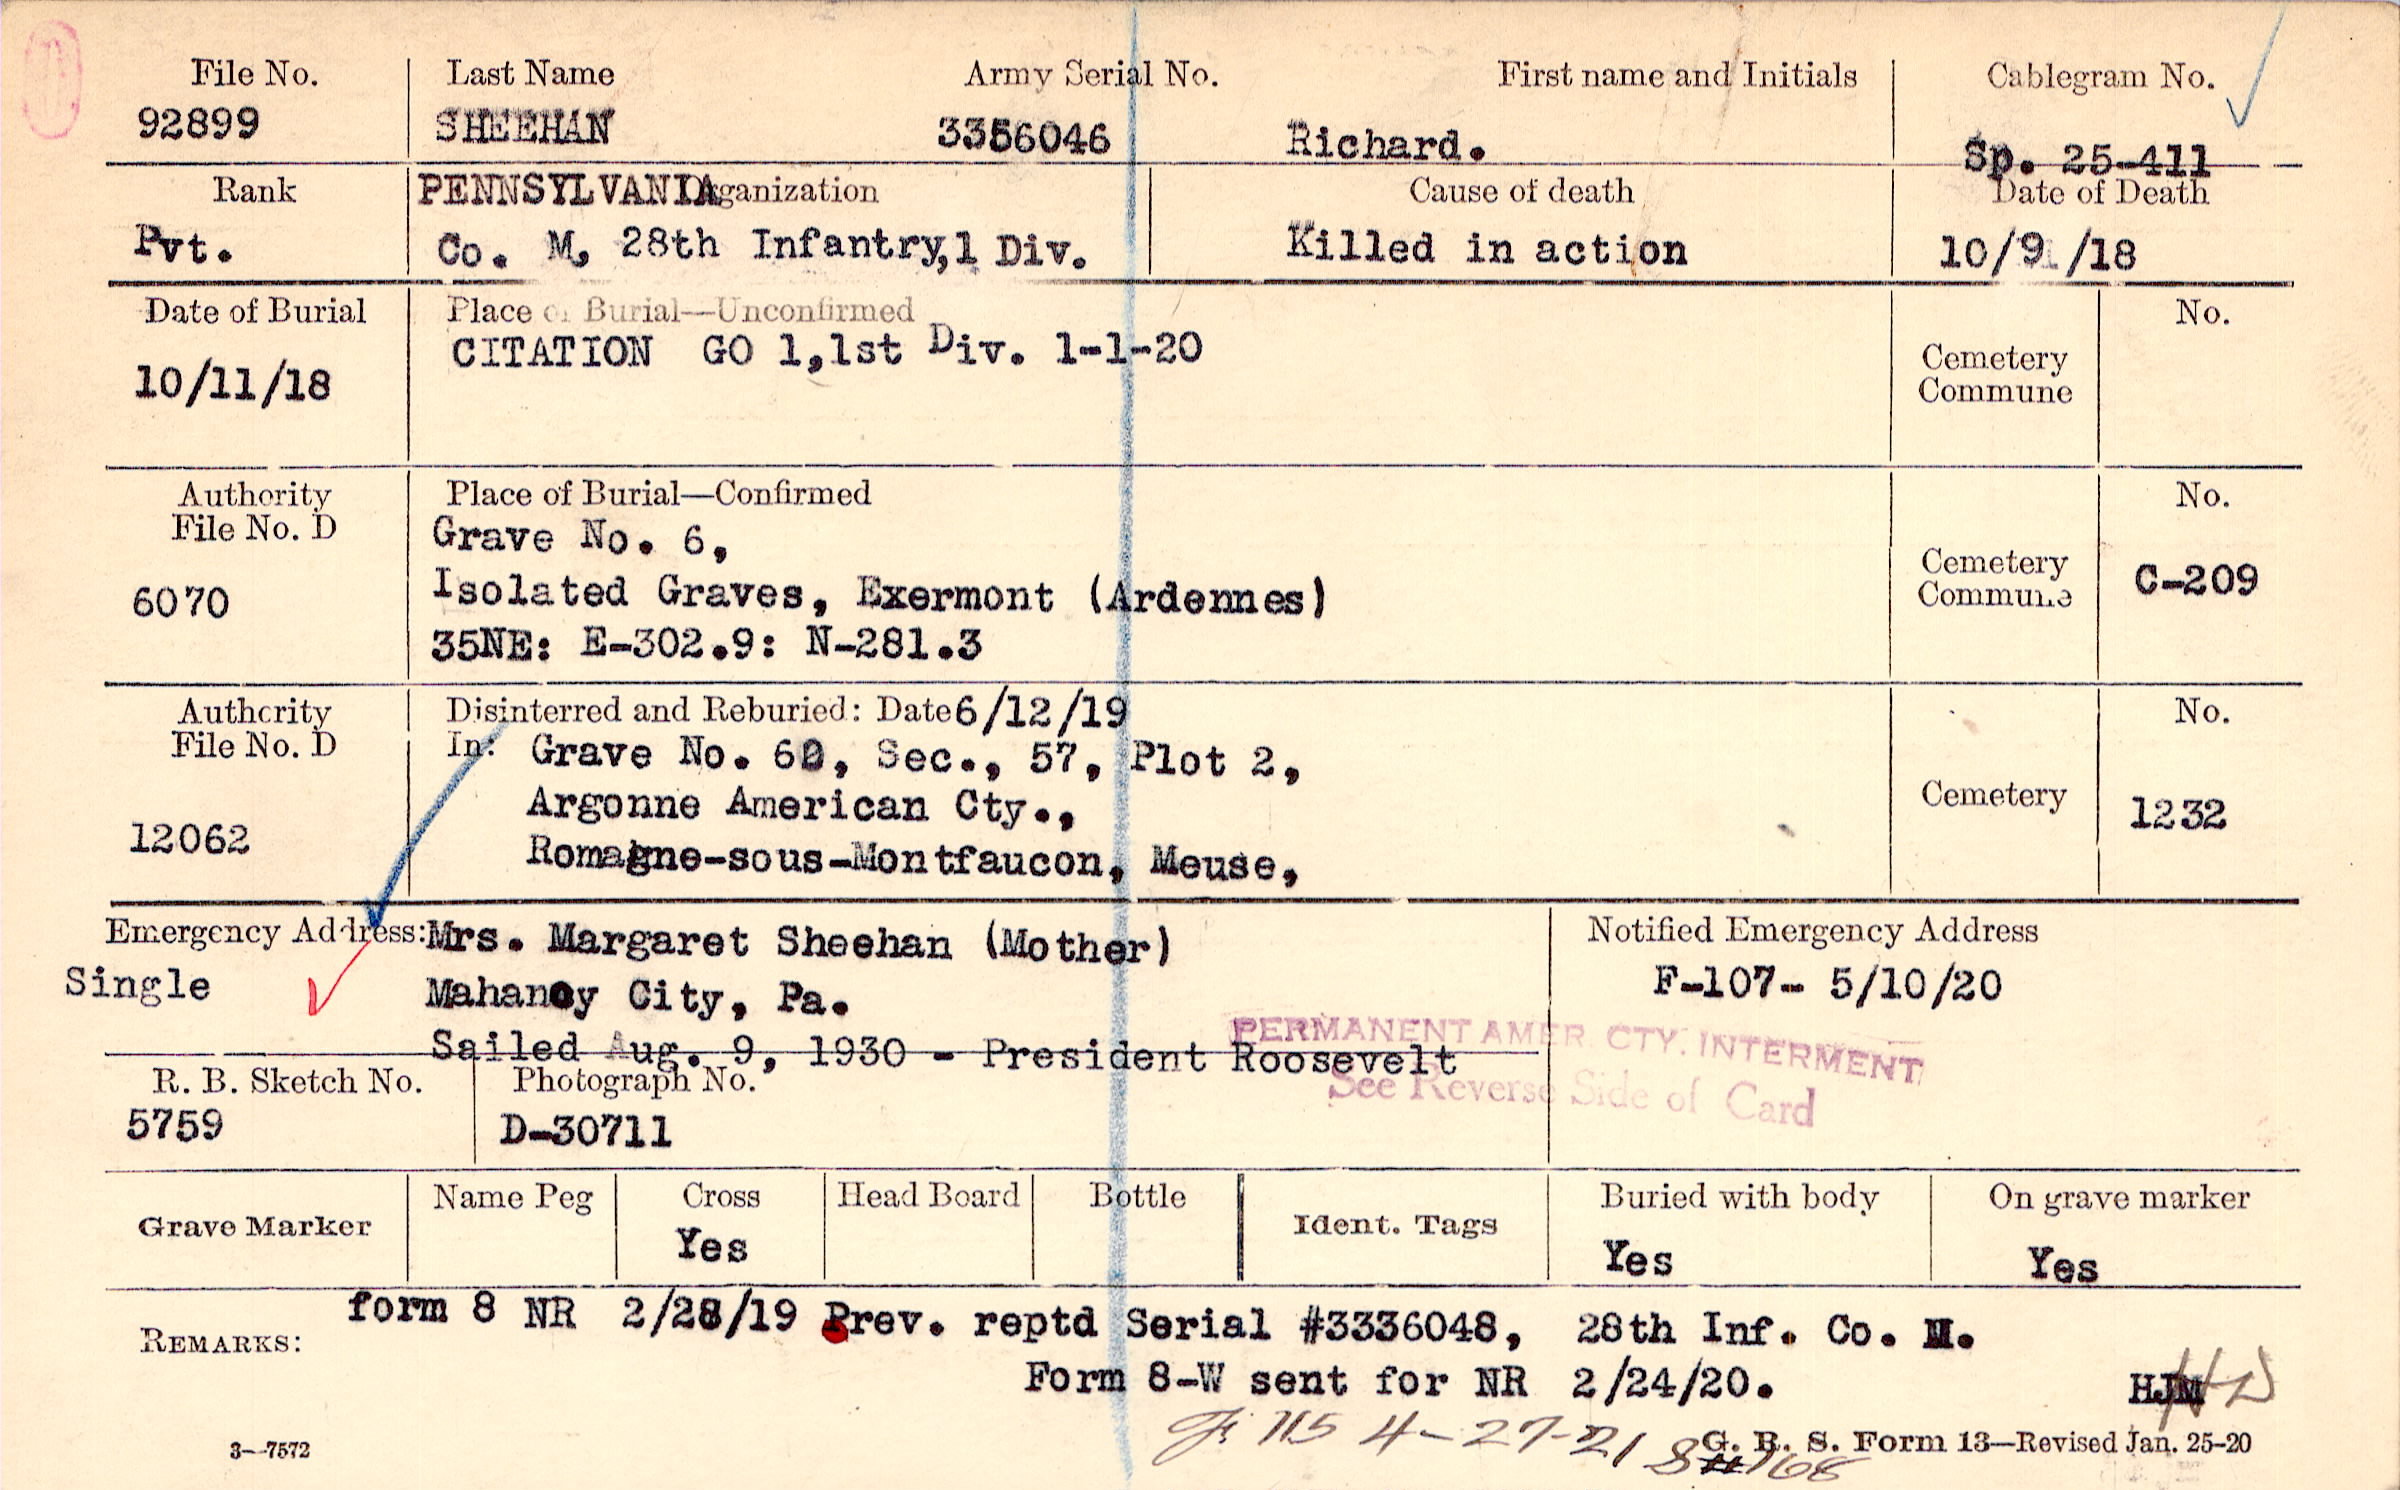 File No. Last Name Army Serial No. First name and Initials Cablegram No.
92899 SHEEHAN 3356046 Richard. Sp. 25-411
Rank PENNSYLVANIA Organization Cause of death Date of Death
Pvt. Co. M, 28th Infantry,1 Div. Killed in action 10/9 /18
Date of Burial Place of Burial—Unconfirmed No.
10/11/18 CITATION GO 1,1st Div. 1-1-20 Cemetery
Commune
Authority Place of Burial—Confirmed No.
File No. D Grave No. 6,
6070 Isolated Graves, Exermont (Ardennes) Cemetery C-209
Commune
35NE: E-302.9: N-281.3
Authority Disinterred and Reburied: Date 6/12/19 No.
File No. D In: Grave No. , Sec., 57, Plot 2,
Argonne American Cty., Cemetery 1232
12062 Romagne-sous-Montfaucon, Meuse,
Emergency Address: Mrs. Margaret Sheehan (Mother) Notified Emergency Address
Single Mahanoy City, Pa. F-107- 5/10/20
Sailed Aug. 9, 1930 - President Roosevelt
PERMANENT AMER. CTY. INTERMENT
See Reverse Side of Card
R. B. Sketch No. Photograph No.
5759 D-30711
Grave Marker Name Peg Cross Head Board Bottle Ident. Tags Buried with body On grave marker
Yes Yes Yes
REMARKS: form 8 NR 2/28/19 Prev. reptd Serial #3336048, 28th Inf. Co. M.
Form 8-W sent for NR 2/24/20. HJM
4-27-21
3—7572 G. R. S. Form 13—Revised Jan. 25-20